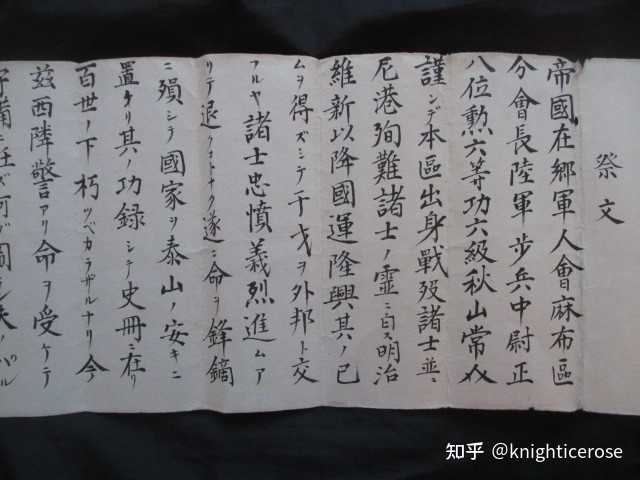 祭文
帝國在郷軍人會麻布區
分會長陸軍歩兵中尉正
八位勲六等功六級秋山常
謹ンデ本區出身戰歿諸士並ニ
尼港殉難諸士ノ靈ニ白ス明治
維新以降國運隆興其ノ已
ムヲ得ズシテ干戈ヲ外邦ト交
フルヤ諸士忠憤義烈進ムア
リテ退クコトナク遂ニ命ヲ鋒鏑
ニ殞シテ國家ヲ泰山ノ安キニ
置キリ其ノ功録シテ史冊ニ在リ
百世ノ下朽ツベカラザルナリ今
茲西隣警アリ命ヲ受ケテ
知乎 @knighticerose